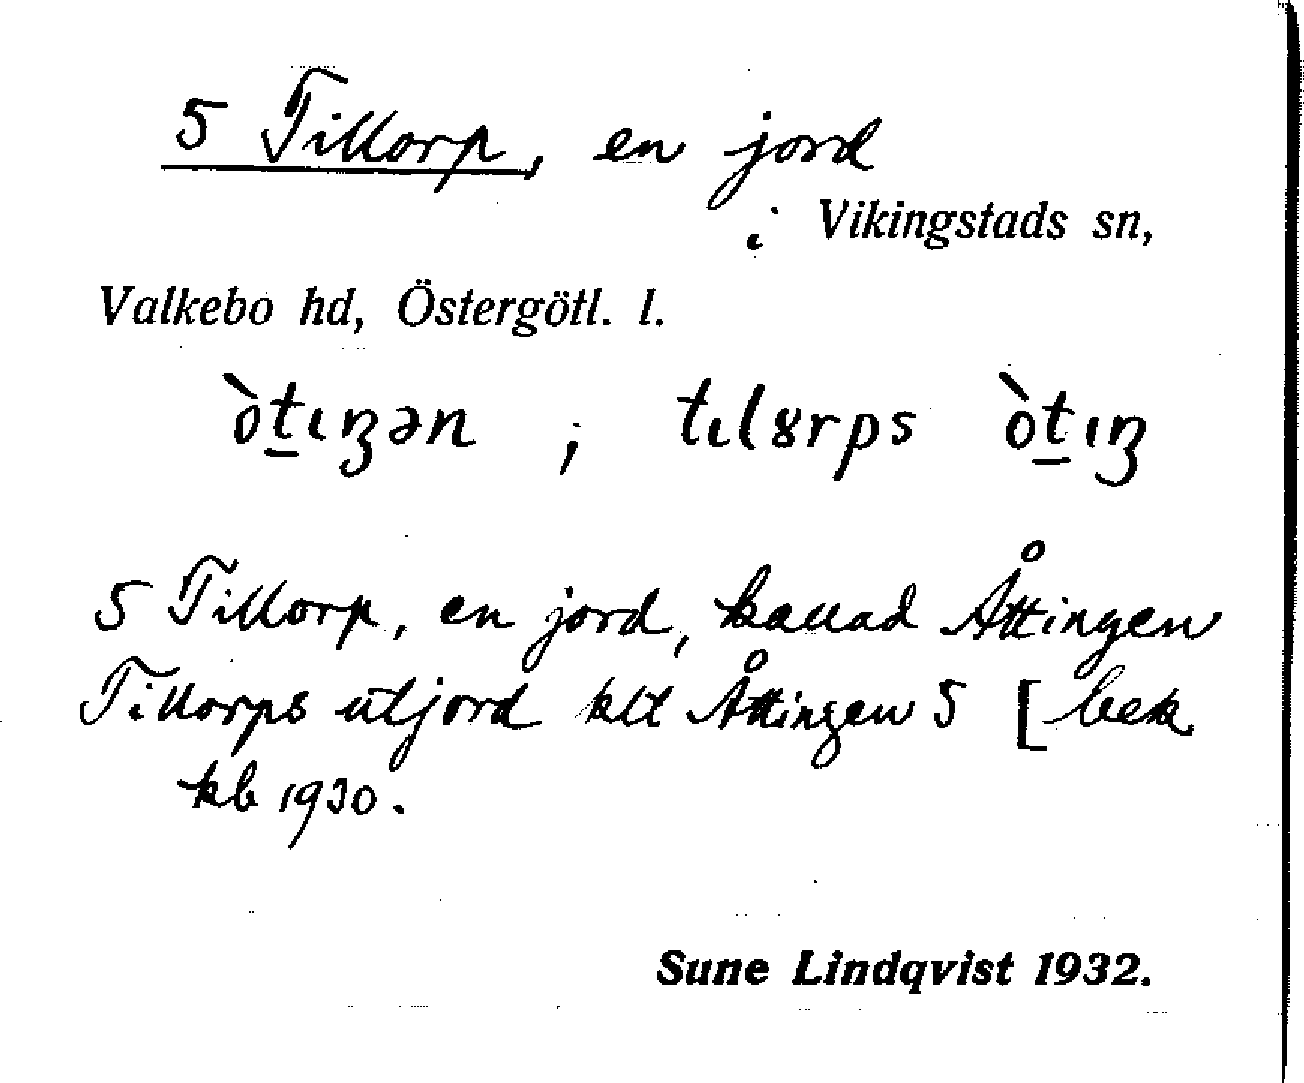 5 Tillorp, en jord
i Vikingstads sn,
Valkebo hd, Östergötl. l.
òt̲ıꞑən ; tılꞷrps òt̲ıꞑ
5 Tillorp, en jord, kallad Åttingen
Tillorps utjord klt Åttingen 5 [bek
kb 1930.
Sune Lindqvist 1932.